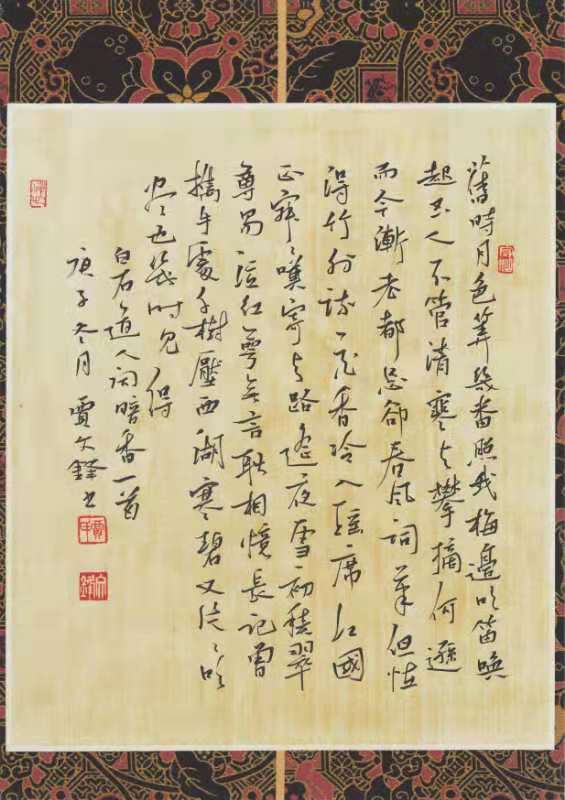 舊時月色算幾番照我梅邊吹笛喚
起玉人不管清寒与攀摘何遜
而今漸老都忘卻春風詞筆但怪
得竹外疏花香冷入瑤席江國
正寂〻嘆寄与路遙夜雪初積翠
尊易泣紅萼無言耿相憶長記曾
攜手處千樹壓西湖寒碧又片〻吹
盡也幾時見得
白石道人詞暗香一首
庚子冬月賈文鐸書